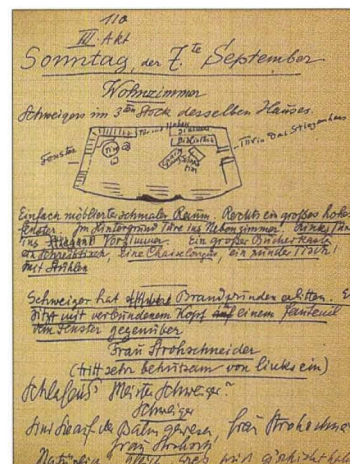 110
III. Akt
Sonntag, der 7te September
Wohnzimmer
Schweigers im 3ten Stock desselben Hauses.
Fenster
Tür in das Stiegenhaus
Einfach möblierter schmaler Raum. Rechts ein großes hohes
Fenster. Im Hintergrund Türe ins Nebenzimmer. Links Türe
ins Vorzimmer. Ein großer Bücherkasten
ein Schreibtisch, eine Chaiselongue, ein runder Tisch
mit Stühlen
Schweiger hat Brandwunden erlitten. Er
sitzt mit verbundenem Kopf auf einem Fauteuil
dem Fenster gegenüber
Frau Strohschneider
(tritt sehr behutsam von links ein)
Schlafens Meister Schweiger?
Schweiger
Sind Sie auf der gewesen, Frau Strohschn
Frau Strohsch